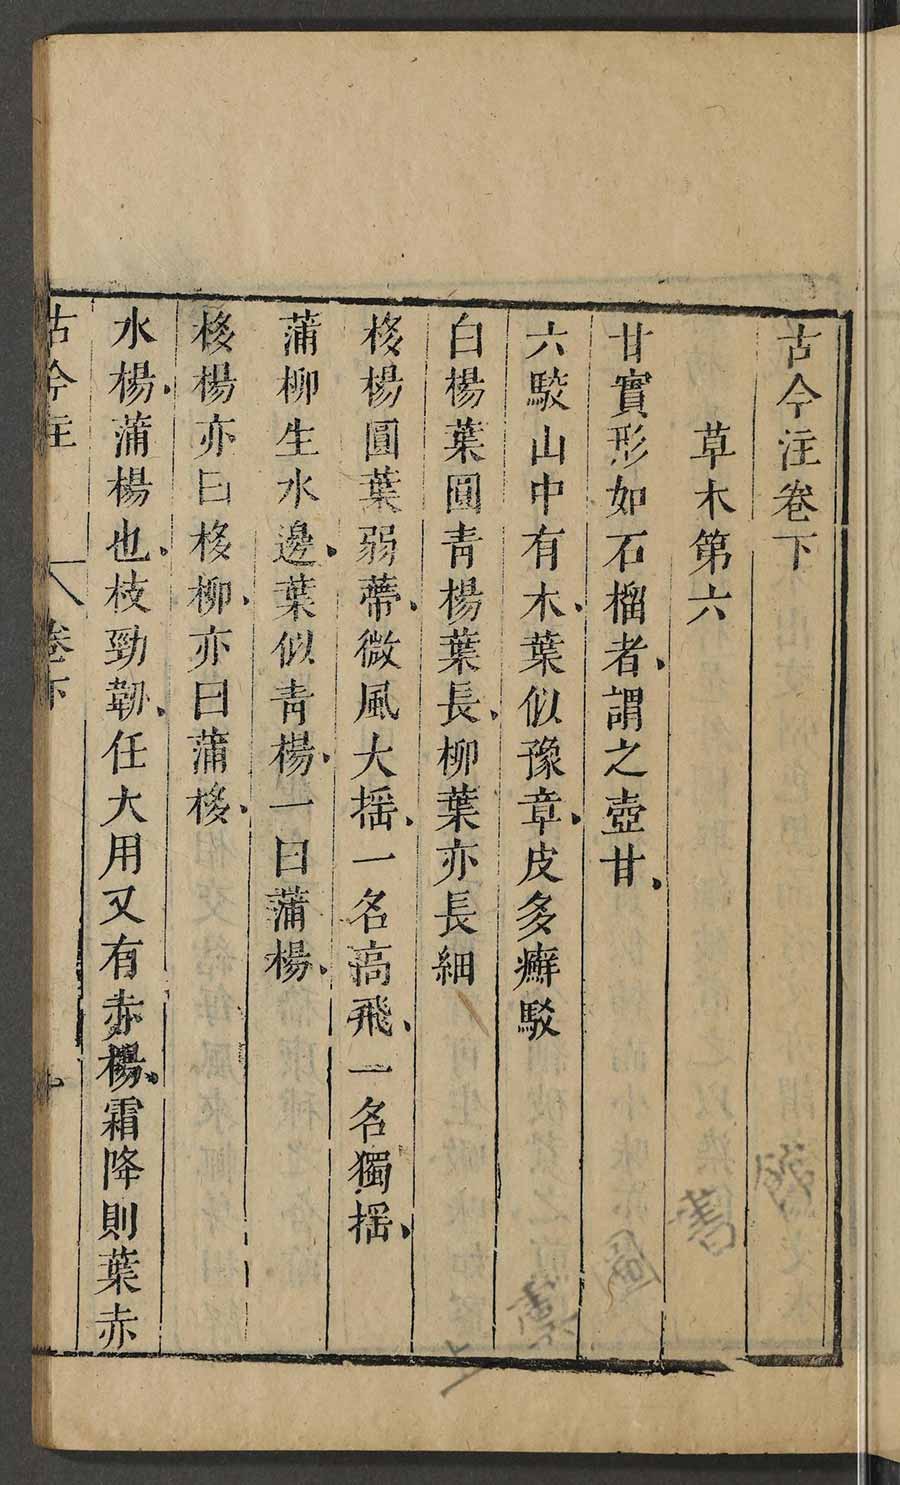 古今注卷下
草木第六
甘實形如石榴者謂之壺甘
六駮山中有木葉似豫章皮多癬駁
白楊葉圓青楊葉長柳葉亦長細
栘楊圓葉弱蔕微風大揺一名高飛一名獨揺
蒲柳生水邊葉似青楊一曰蒲楊
栘楊亦曰栘柳亦曰蒲栘
水楊蒲楊也枝勁韌任大用又有赤楊霜降則葉赤
古今注 卷下